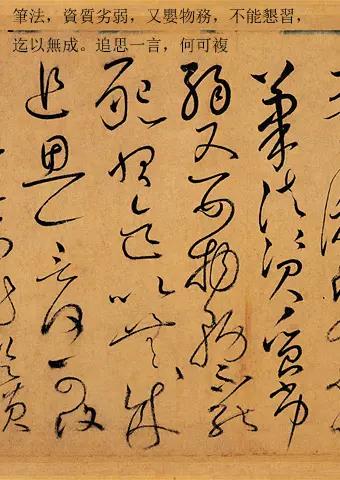 筆法，資質劣弱，又嬰物務，不能懇習，
迄以無成。追思一言，何可複
筆法資質劣
弱又嬰物務不能
懇習迄以無成
追思一言何可復